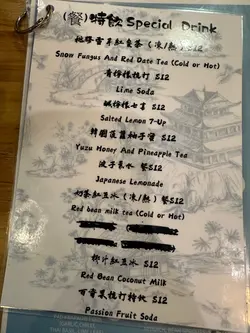 (餐)特飲 Special Drink
桃膠雪耳紅棗茶 (凍/熱) $12
Snow Fungus And Red Date Tea (Cold or Hot)
青檸梳打 $12
Lime Soda
鹹檸七喜 $12
Salted Lemon 7-Up
Yuzu Honey And Pineapple Tea
波子汽水 餐$12
Japanese Lemonade
奶茶紅豆冰 (凍/熱) 餐$12
Red bean milk tea (Cold or Hot)
椰汁紅豆冰 $12
Red Bean Coconut Milk
百香果梳打特飲 $12
Passion Fruit Soda